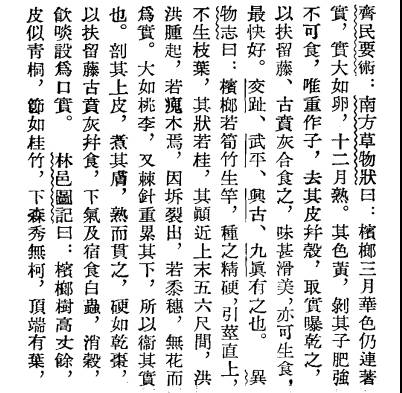 齊民要術：南方草物狀曰：檳榔三月華色仍連著
實，實大如卵，十二月熟。其色黃，剝其子肥強
不可食，唯重作子，去其皮幷殼，取實曝乾之，
以扶留藤、古賁灰合食之，味甚滑美，亦可生食，
最快好。交趾、武平、興古、九眞有之也。　異
物志曰：檳榔若筍竹生竿，種之精硬，引莖直上，
不生枝葉，其狀若桂，其顛近上末五六尺間，洪
洪腫起，若瑰木焉，因坼裂出，若黍穗，無花而
爲實。大如桃李，又棘針重累其下，所以衞其實
也。剖其上皮，煮其膚，熟而貫之，硬如乾棗，
以扶留藤古賁灰幷食，下氣及宿食白蟲，消穀，
飮啖設爲口實。　林邑圖記曰：檳榔樹高丈餘，
皮似青桐，節如桂竹，下森秀無柯，頂端有葉，